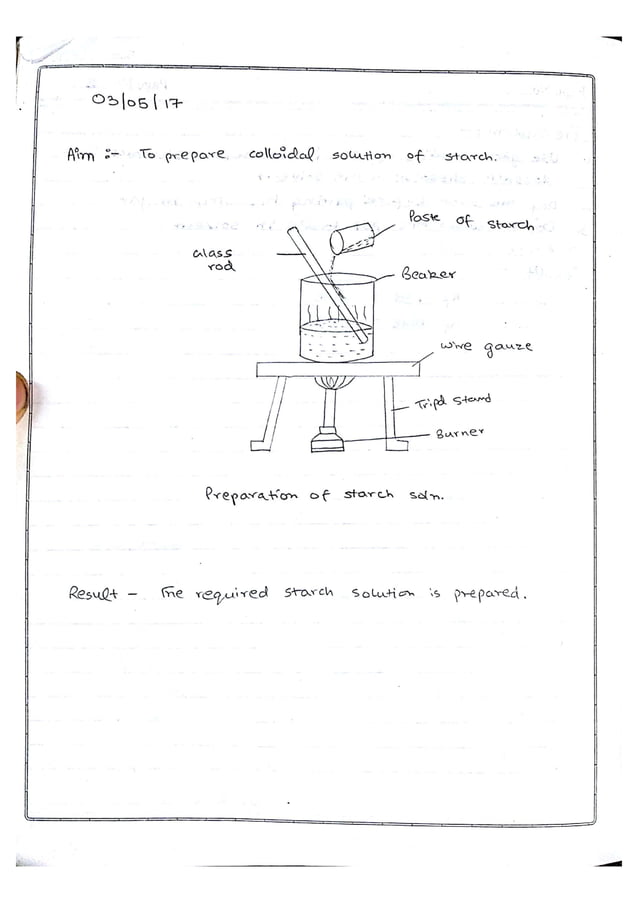 03/05/17
Aim :- To prepare colloidal solution of starch.
Paste of starch
Glass
rod
Beaker
Wire gauze
Tripd Stand
Burner
Preparation of starch soln.
Result - The required starch solution is prepared.